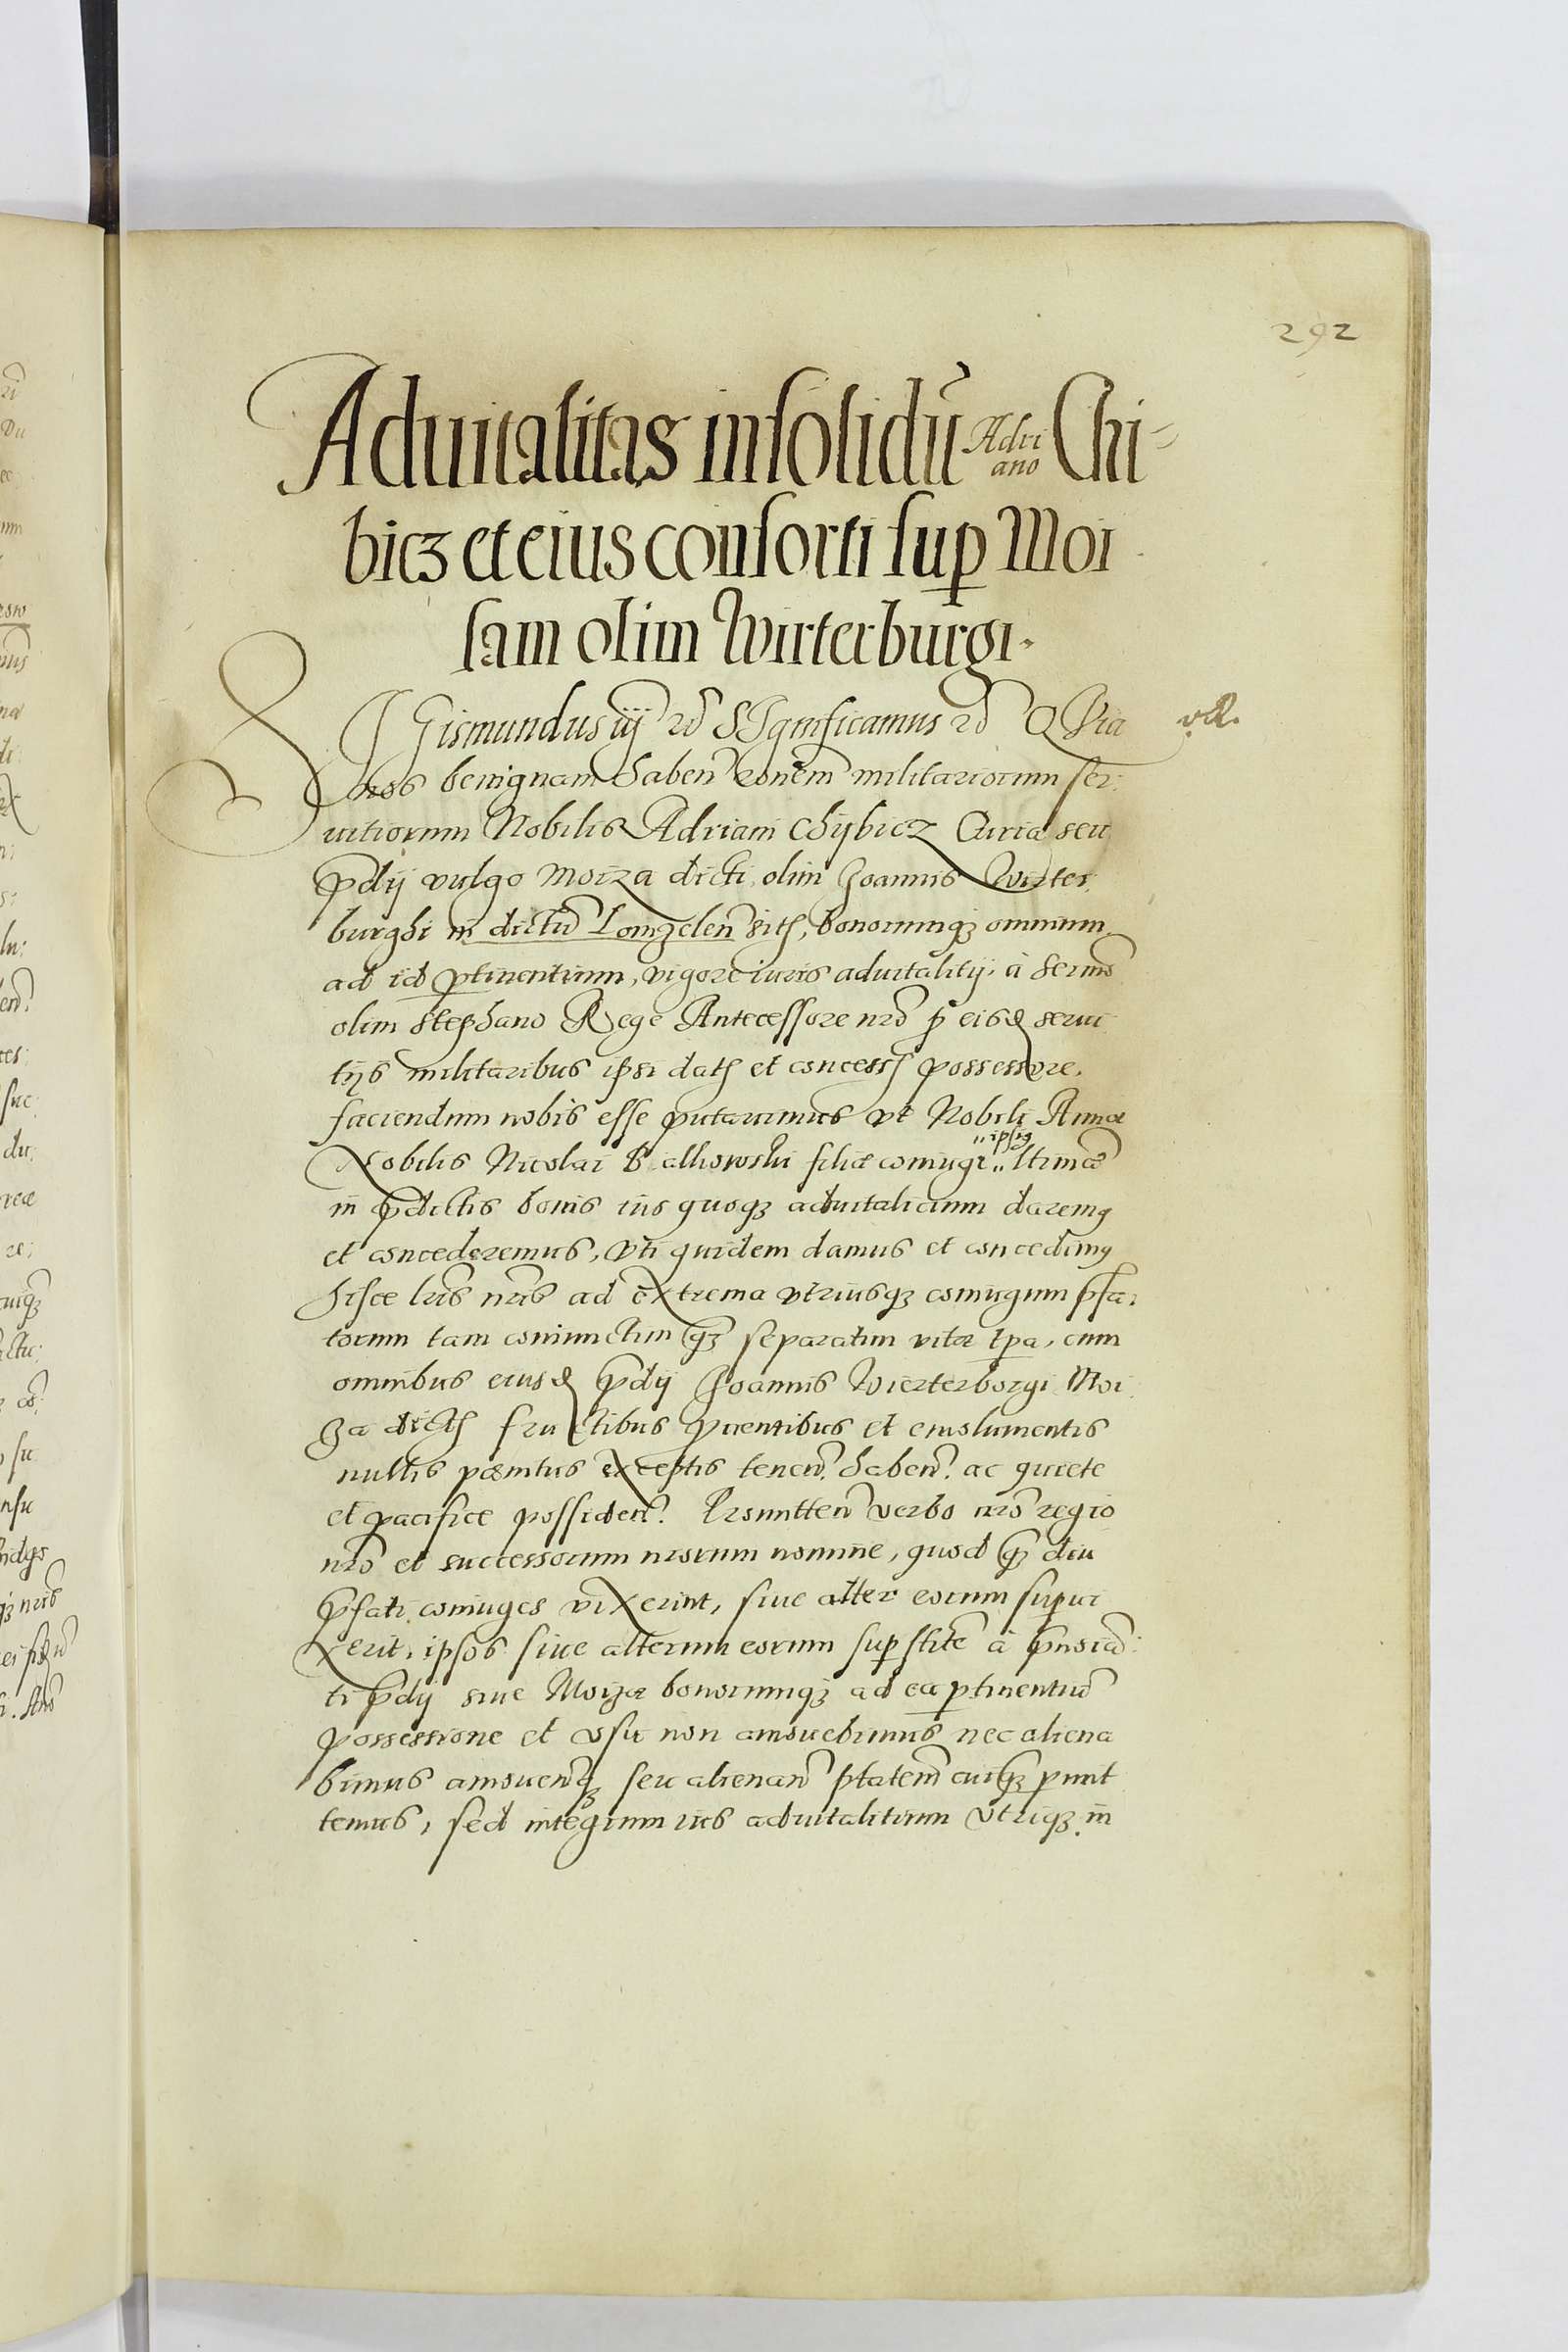 292
Aduitalitas insolidū Adri
ano Chi-
bicz et eius consorti sup Moi
sam olim Wirterburgi.
SIGismundus iij rc̄ SIgnificamus rc̄ QVia
nos benignam haben̄ ronem̄ militariorum ser:
uitiorum Nobilis Adriani Chybicz Curiæ seu
p̄dij vulgo Moiza dicti olim Joannis Wirter,
burghi in dictū Lomzelen̄ siti, bonorumq₃ omnium
ad id ptinentium, vigore iuris aduitalitij à Sermō
olim Stephano Rege Antecessore nrō p eisđ serui
tijs militaribus ipsi dati et concessi possessore.
faciendum nobis esse putauimus vt Nobili Annæ
Nobilis Nicolai Balliowski filiæ coniugi „ ipsiꝯ „ ltimæ
in p̄dictis bonis ius quoq₃ aduitalicium daremꝯ
et concederemus, vti quidem damus et concedimꝯ
hisce lris̄ nris̄ ad extrema vtriusq₃ coniugum p̄fa:
torum tam coniunctim q₃ separatim vitæ tpa, cum
omnibus eiusđ p̄dij Joannis Wierterborgi Moi
za dicti fructibus puentibus et emolumentis
nullis pœnitus exceptis tenen̄. haben̄. ac quiete
et pacifice possiden̄. Promitten̄ verbo nrō regio
nrō et successorum nrorum nomine, quod q₃ diu
p̄fati coniuges vixerint, siue alter eorum superui
xerit, ipsos siue alterum eorum supstitē à p̄notā:
ti p̄dij siue Moizæ bonorumq₃ ad ea ptinentiū
possessione et vsu non amouebimus nec aliena
bimus amouen̄q₃ seu alienan̄ ptatem̄ cuiq₃ pmit
temus, sed integrum ius aduitalitium vtriq₃ in